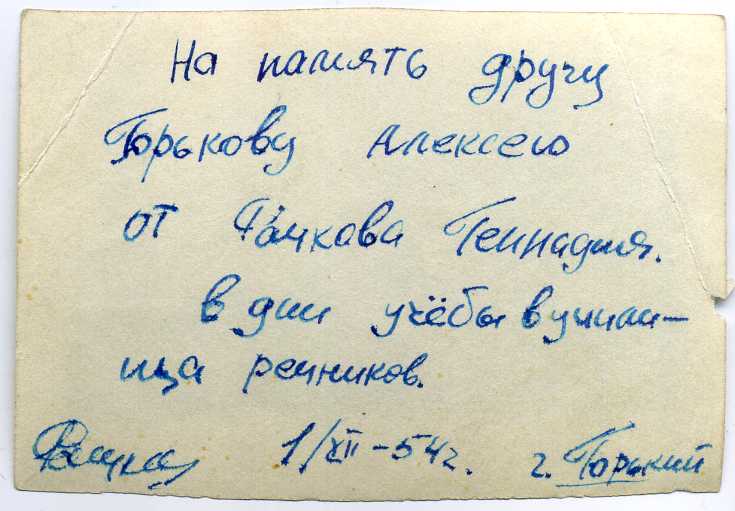 На память другу
Горькову Алексею
от Рачкова Геннадия.
в дни учёбы в учили-
ща речников.
1/XII-54г. г. Горький